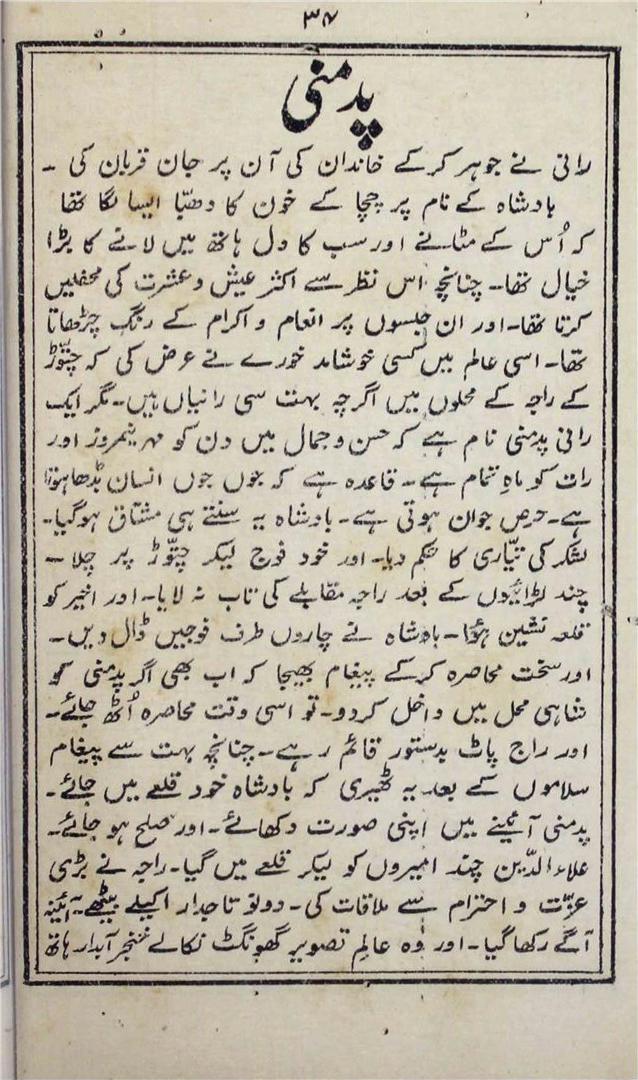 ۳۴
پدمنی
رانی نے جوہر کرکے خاندان کی آن پر جان قربان کی ۔
بادشاہ کے نام پر چچا کے خون کا دھبّا ایسا لگا تھا
کہ اُس کے مٹانے اور سب کا دل ہاتھ میں لانے کا بڑا
خیال تھا۔ چنانچہ اس نظر سے اکثر عیش و عشرت کی محفلیں
کرتا تھا۔ اور ان جلسوں پر انعام و اکرام کے رنگ چڑھاتا
تھا۔ اسی عالم میں کسی خوشامد خورے نے عرض کی کہ چتوّڑ
کے راجہ کے محلوں میں اگرچہ بہت سی رانیاں ہیں۔ مگر ایک
رانی پدمنی نام ہے کہ حسن و جمال میں دن کو مہر نیمروز اور
رات کو ماہِ تمام ہے۔ قاعدہ ہے کہ جوں جوں انسان بڈھا ہوتا
ہے۔ حرص جوان ہوتی ہے۔ بادشاہ یہ سنتے ہی مشتاق ہوگیا۔
لشکر کی تیّاری کا حکم دیا۔ اور خود فوج لیکر چتوّڑ پر چلا ۔
چند لڑائیوں کے بعد راجہ مقابلے کی تاب نہ لایا۔ اور اخیر کو
قلعہ نشین ہؤا۔ بادشاہ نے چاروں طرف فوجیں ڈال دیں۔
اور سخت محاصرہ کرکے پیغام بھیجا کہ اب بھی اگر پدمنی کو
شاہی محل میں داخل کردو۔ تو اسی وقت محاصرہ اُٹھ جائے۔
اور راج پاٹ بدستور قائم رہے۔ چنانچہ بہت سے پیغام
سلاموں کے بعد یہ ٹھیری کہ بادشاہ خود قلعے میں جائے۔
پدمنی آئینے میں اپنی صورت دکھائے۔ اور صلح ہو جائے۔
علاءالدّین چند امیروں کو لیکر قلعے میں گیا۔ راجہ نے بڑی
عزّت و احترام سے ملاقات کی۔ دونو تاجدار اکیلے بیٹھے۔ آئینہ
آگے رکھا گیا۔ اور وہ عالمِ تصویر گھونگٹ نکالے خنجر آبدار ہاتھ